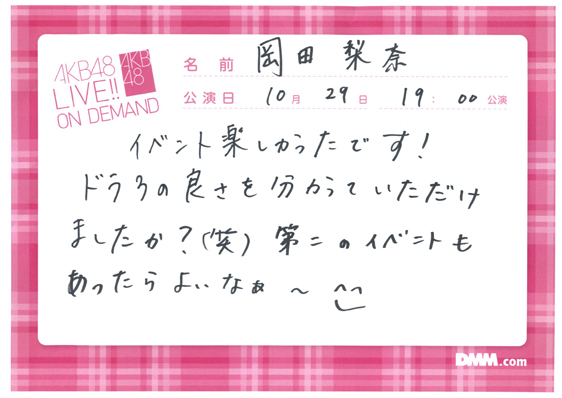 AKB48
LIVE!!
ON DEMAND
AKB
48
名前 岡田梨奈
公演日 10月 29日 19:00公演
イベント楽しかったです!
ドラ3の良さを分かっていただけ
ましたか?(笑) 第二のイベントも
あったらよいなぁ〜
DMM.com